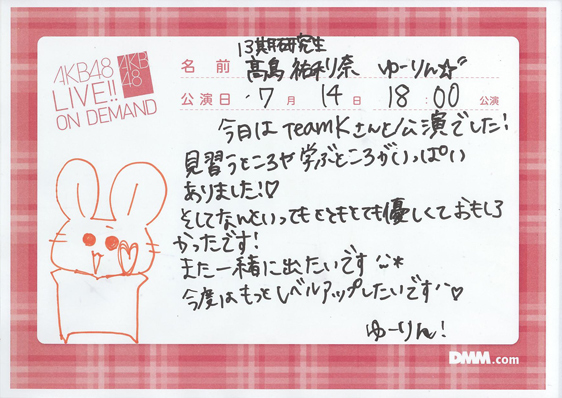 AKB48
LIVE!!
ON DEMAND
AKB
48
13期研究生
名前 髙島祐利奈 ゆーりん☆
公演日 7月14日 18:00 公演
今日はteamKさんと公演でした!
見習うところや学ぶところがいっぱい
ありました!♡
そしてなんといってもとてもとても優しくておもしろ
かったです!
また一緒に出たいです^^*
今度はもっとレベルアップしたいです^^♡
ゆーりん!
DMM.com